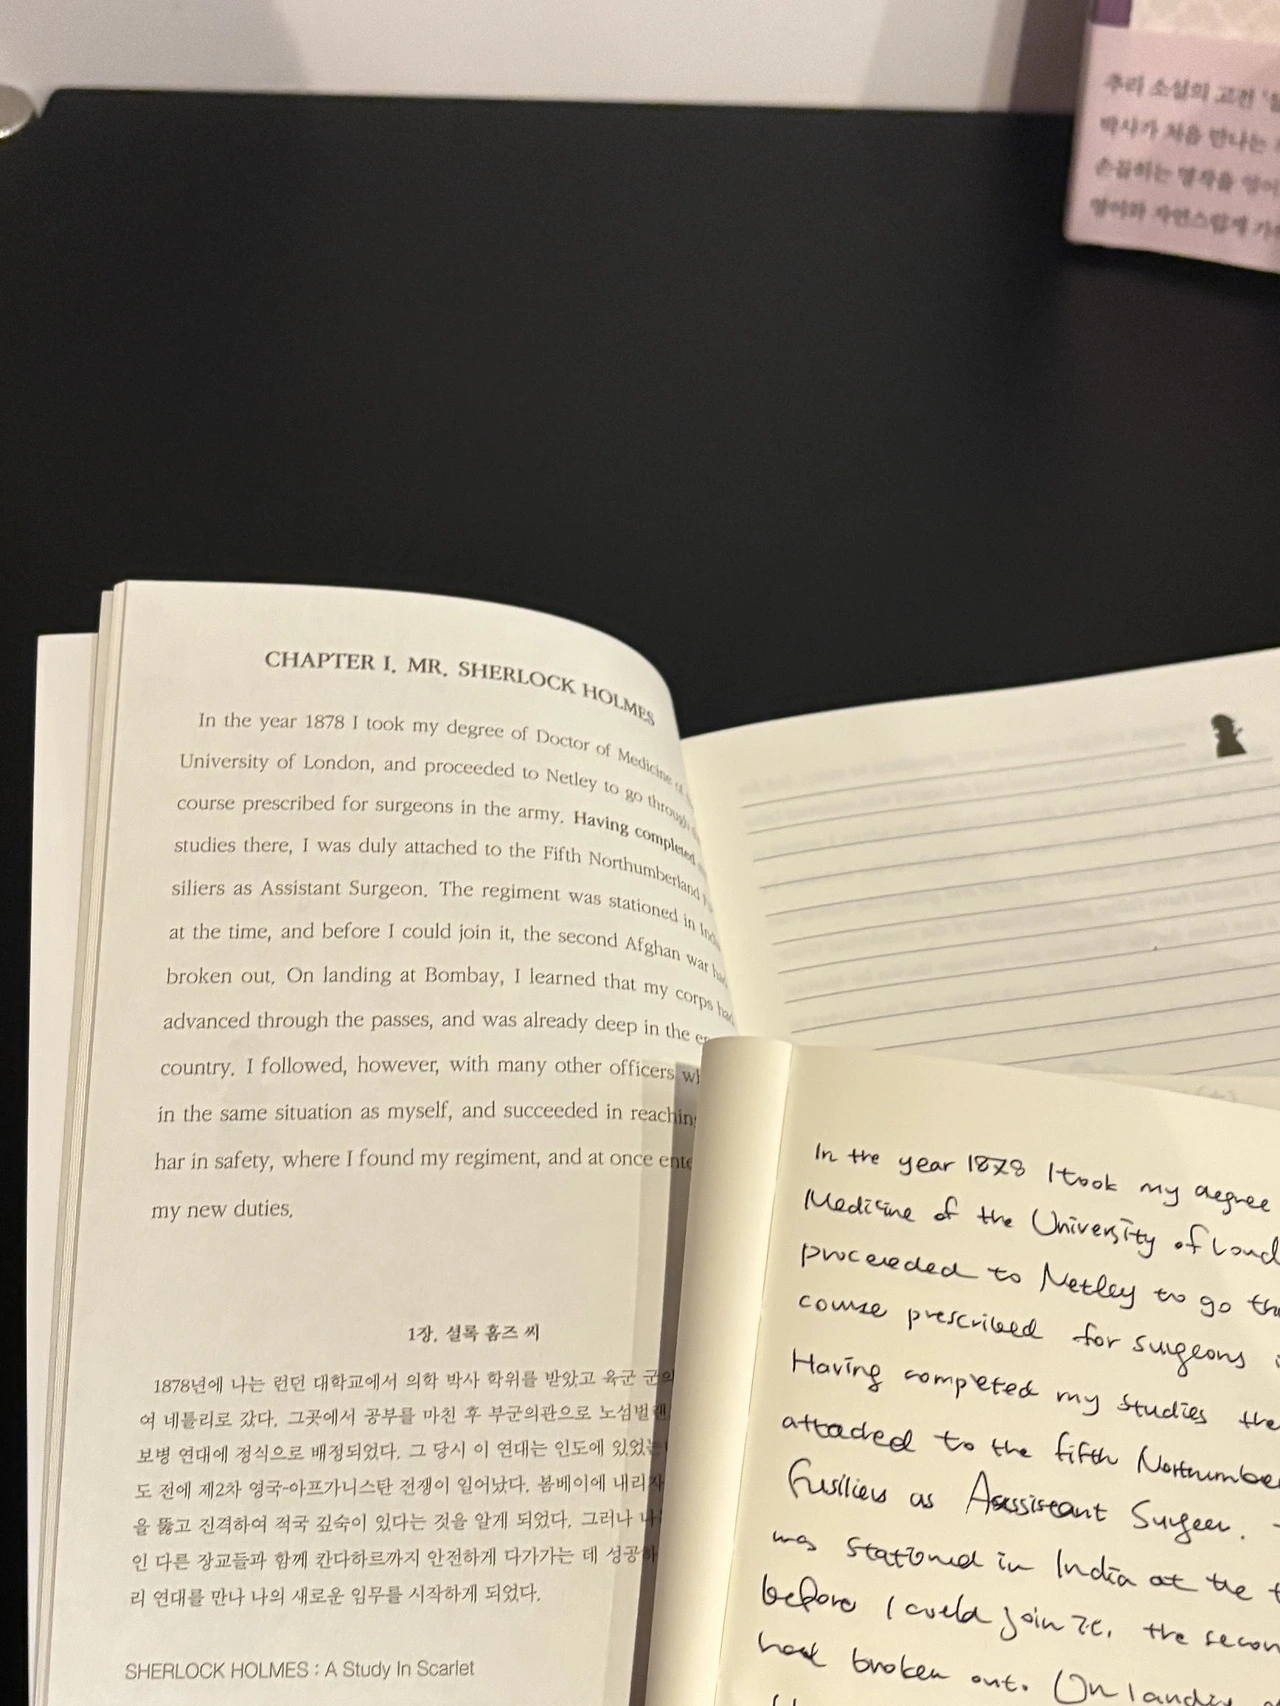 추리 소설의 고전 '셜
박사가 처음 만나는
손꼽히는 명작을 영어
영어와 자연스럽게
CHAPTER I. MR. SHERLOCK HOLMES
In the year 1878 I took my degree of Doctor of Medicine of
University of London, and proceeded to Netley to go through
course prescribed for surgeons in the army. Having completed
studies there, I was duly attached to the Fifth Northumberland
siliers as Assistant Surgeon. The regiment was stationed in
at the time, and before I could join it, the second Afghan war had
broken out. On landing at Bombay, I learned that my corps had
advanced through the passes, and was already deep in the
country. I followed, however, with many other officers
in the same situation as myself, and succeeded in
har in safety, where I found my regiment, and at once
my new duties.
1장. 셜록 홈즈 씨
1878년에 나는 런던 대학교에서 의학 박사 학위를 받았고 육군
여 네틀리로 갔다. 그곳에서 공부를 마친 후 부군의관으로 노섬벌랜
보병 연대에 정식으로 배정되었다. 그 당시 이 연대는 인도에 있었
도 전에 제2차 영국-아프가니스탄 전쟁이 일어났다. 봄베이에 내리
을 뚫고 진격하여 적국 깊숙이 있다는 것을 알게 되었다. 그러나
인 다른 장교들과 함께 칸다하르까지 안전하게 다가가는 데 성공
리 연대를 만나 나의 새로운 임무를 시작하게 되었다.
SHERLOCK HOLMES : A Study In Scarlet
In the year 1878 I took my degree
Medicine of the University of Lond
proceeded to Netley to go
course prescribed for surgeons
Having completed my studies the
attached to the fifth Northumbe
Fusiliers as Assistant Surgeon.
was stationed in India at the
before I could join it. the secon
had broken out. On landing